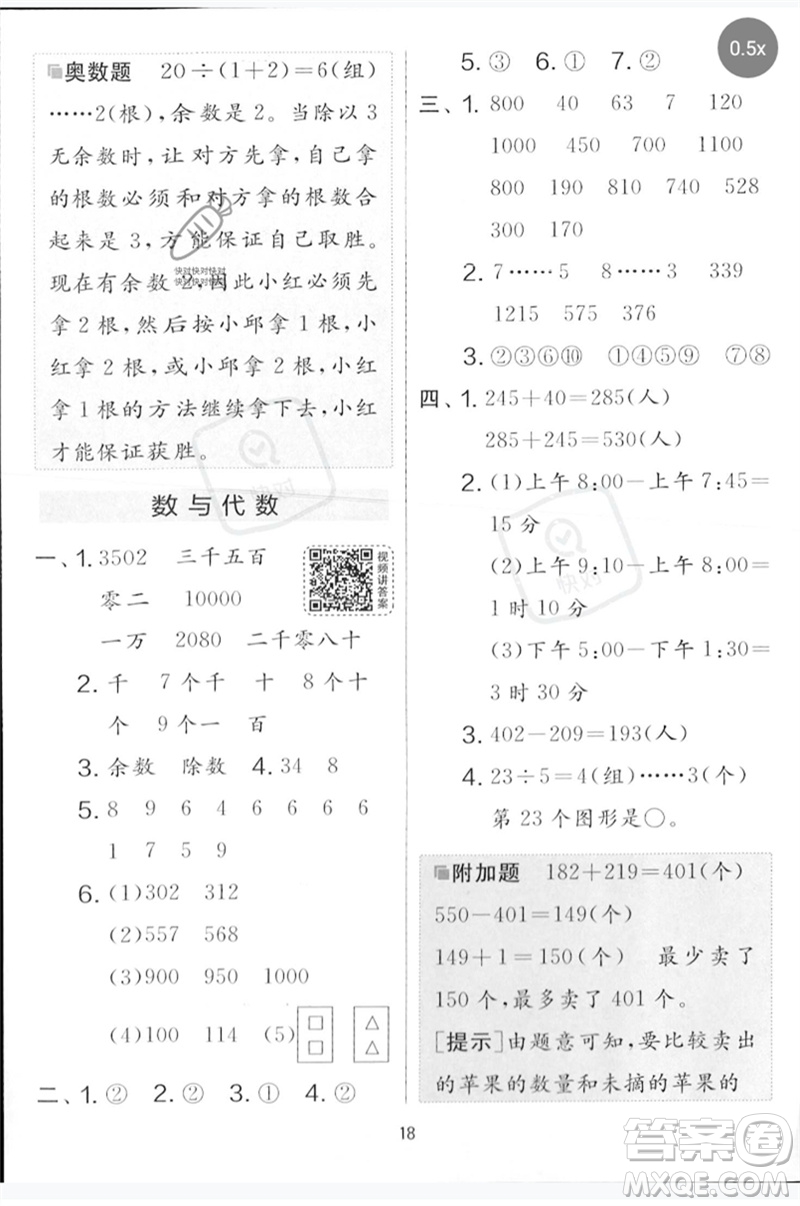 0.5x
奥数题 20÷(1+2)=6(组)
……2(根),余数是2。当除以3
无余数时,让对方先拿,自己拿
的根数必须和对方拿的根数合
起来是3,方能保证自己取胜。
现在有余数2,因此小红必须先
拿2根,然后按小邱拿1根,小
红拿2根,或小邱拿2根,小红
拿1根的方法继续拿下去,小红
才能保证获胜。
快对快对快对
快对快对快对
快对
数与代数
一、1.3502 三千五百
零二 10000
一万 2080 二千零八十
视频讲答案
2.千 7个千 十 8个十
个 9个一 百
3.余数 除数 4.34 8
5.8 9 6 4 6 6 6 6
1 7 5 9
6.(1)302 312
(2)557 568
(3)900 950 1000
(4)100 114 (5) □ □ △ △
二、1.② 2.② 3.① 4.②
5.③ 6.① 7.②
三、1. 800 40 63 7 120
1000 450 700 1100
800 190 810 740 528
300 170
2.7……5 8……3 339
1215 575 376
3.②③⑥⑩ ①④⑤⑨ ⑦⑧
四、1.245+40=285(人)
285+245=530(人)
2.(1)上午8:00-上午7:45=
15分
(2)上午9:10-上午8:00=
1时10分
(3)下午5:00-下午1:30=
3时30分
快对
3.402-209=193(人)
4.23÷5=4(组)……3(个)
第23个图形是○。
附加题 182+219=401(个)
550-401=149(个)
149+1=150(个) 最少卖了
150个,最多卖了401个。
[提示]由题意可知,要比较卖出
的苹果的数量和未摘的苹果的
18
答案圈
MXQE.COM